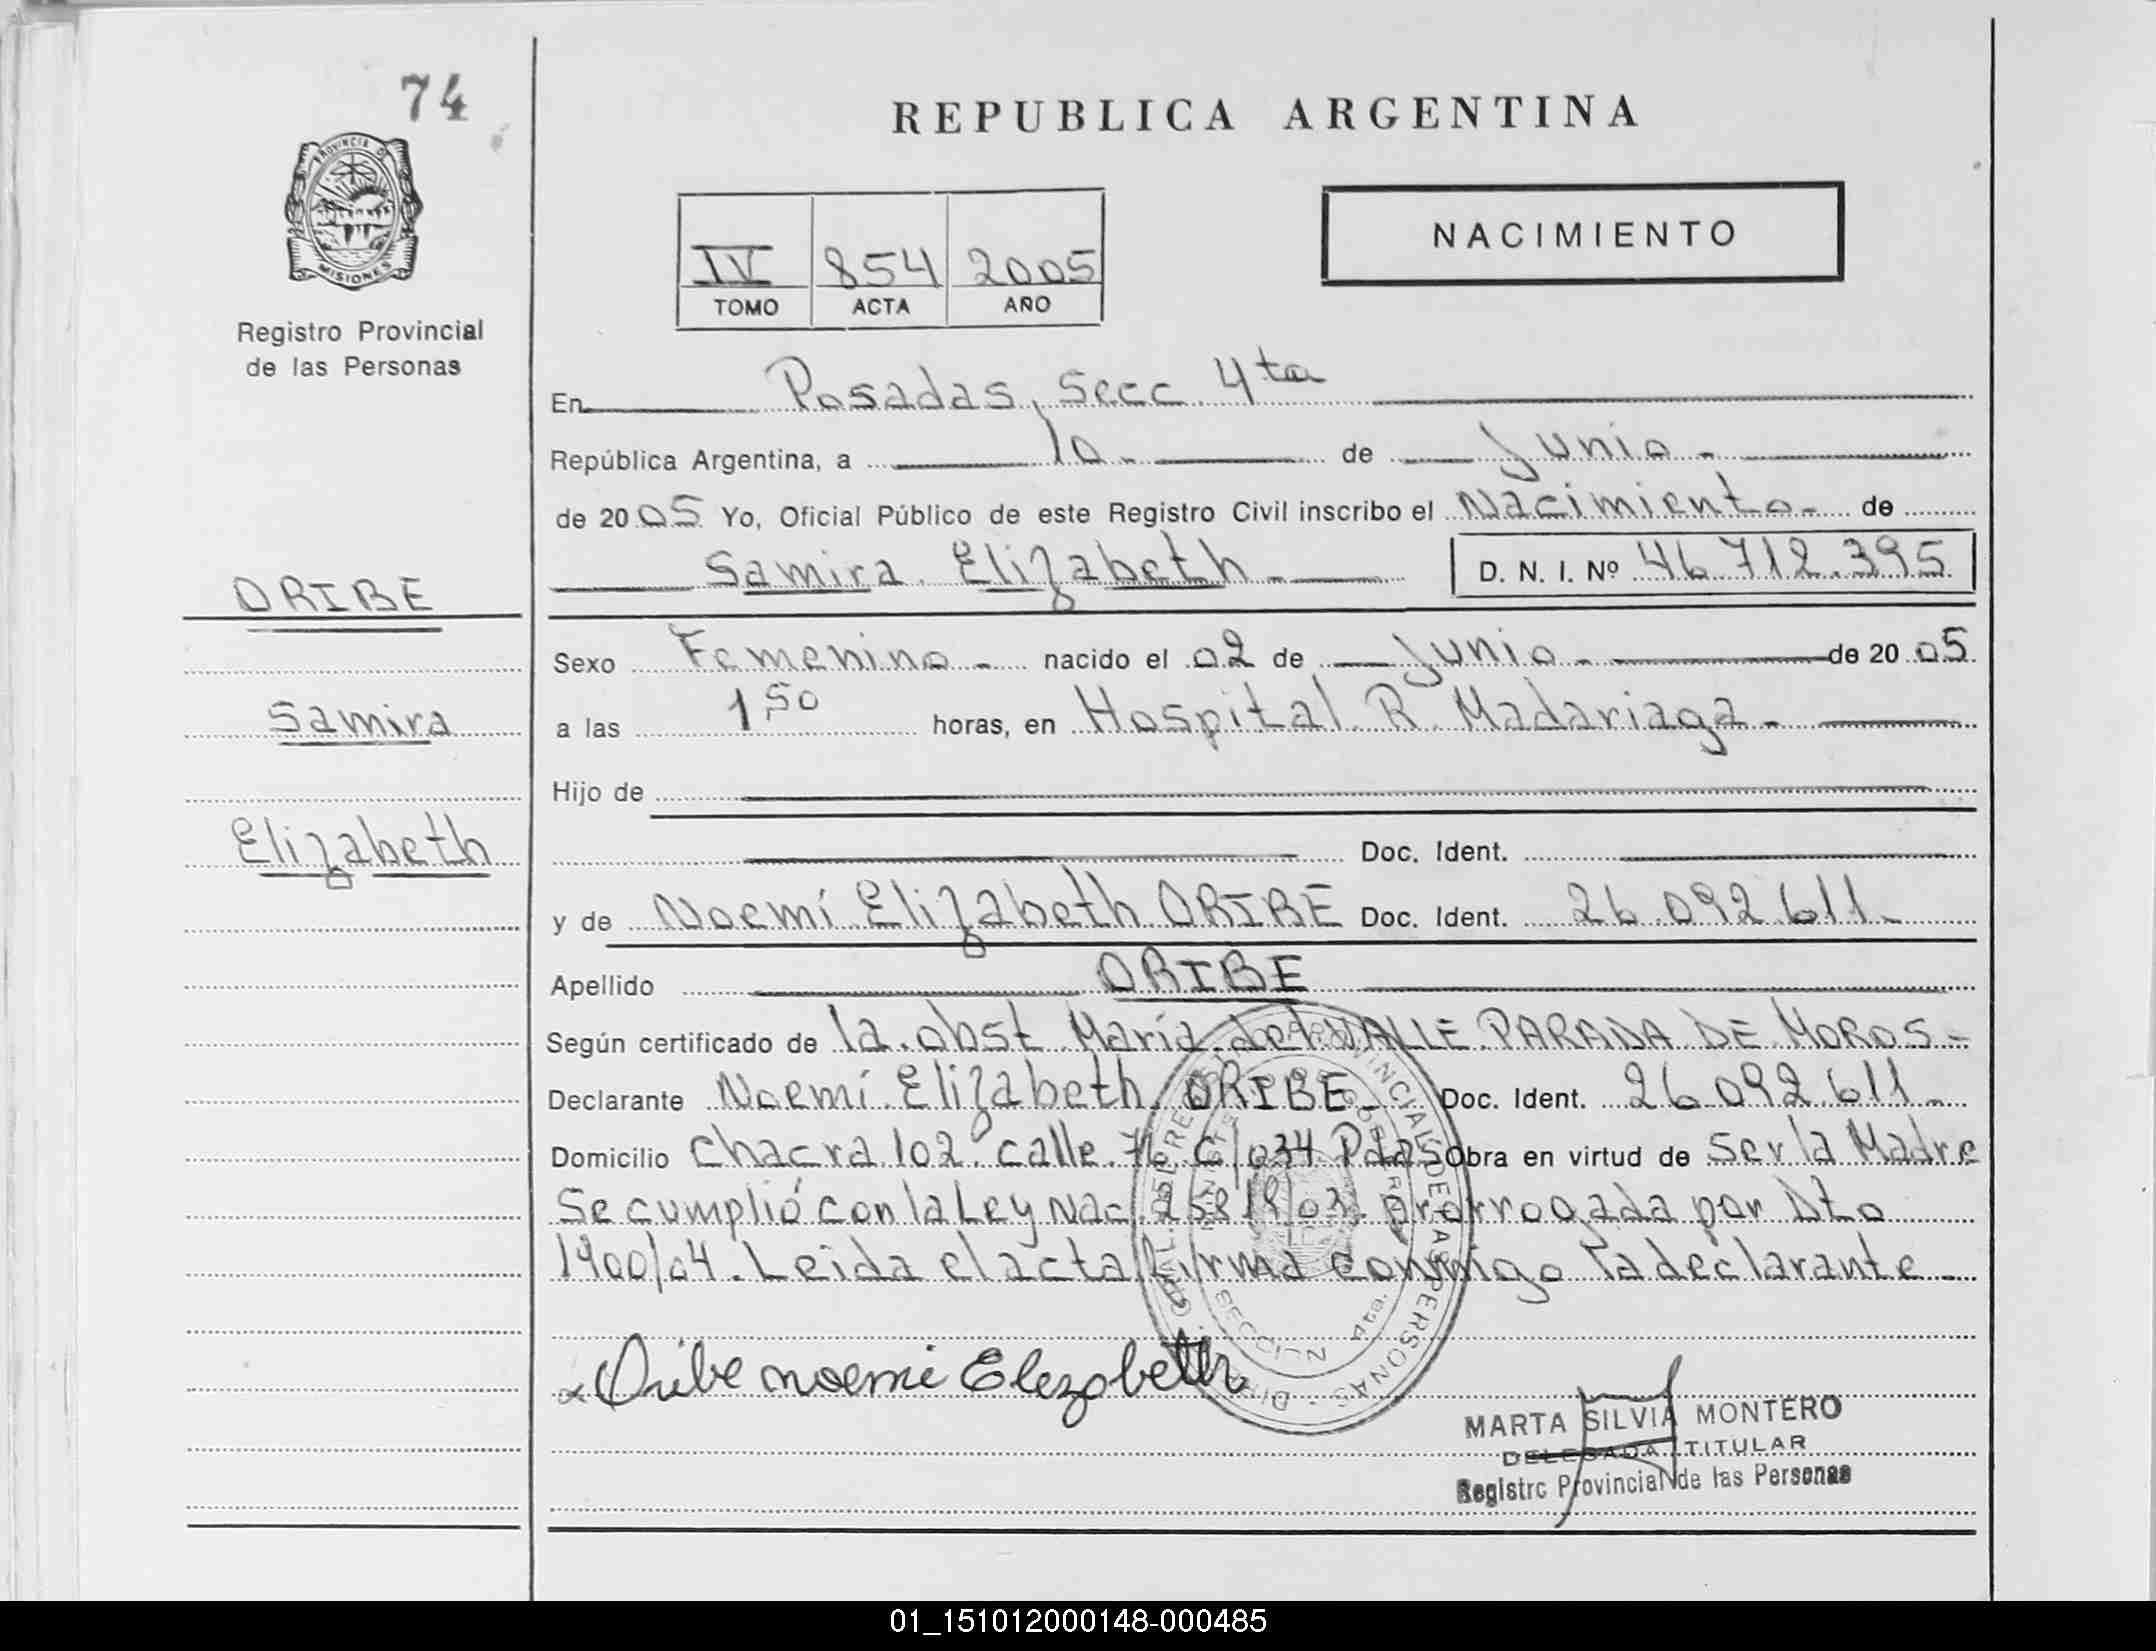 74
REPUBLICA ARGENTINA
PROVINCIA DE
MISIONES
Registro Provincial
de las Personas
IV 854 2005
TOMO ACTA AÑO
NACIMIENTO
En Posadas, Secc 4ta
República Argentina, a 10 - de Junio -
de 2005 Yo, Oficial Público de este Registro Civil inscribo el Nacimiento - de
Samira Elizabeth - D. N. I. Nº 46.712.395
ORIBE
Samira
Elizabeth
Sexo Femenino - nacido el 02 de Junio - de 2005
a las 1,50 horas, en Hospital R. Madariaga -
Hijo de
Doc. Ident.
y de Noemí Elizabeth ORIBE Doc. Ident. 26.092.611 -
Apellido ORIBE
Según certificado de la obst María del VALLE PARADA DE MOROS -
Declarante Noemí Elizabeth ORIBE - Doc. Ident. 26.092.611 -
Domicilio Chacra 102 calle 76 C/034 Pdas Obra en virtud de ser la Madre
Se cumplió con la Ley Nac. 25819/03 prorrogada por Dto
1900/04. Leida el acta firma conmigo la declarante -
Oribe noemi Elezabeth
MARTA SILVIA MONTERO
DELEGADA TITULAR
Registro Provincial de las Personas
01_151012000148-000485